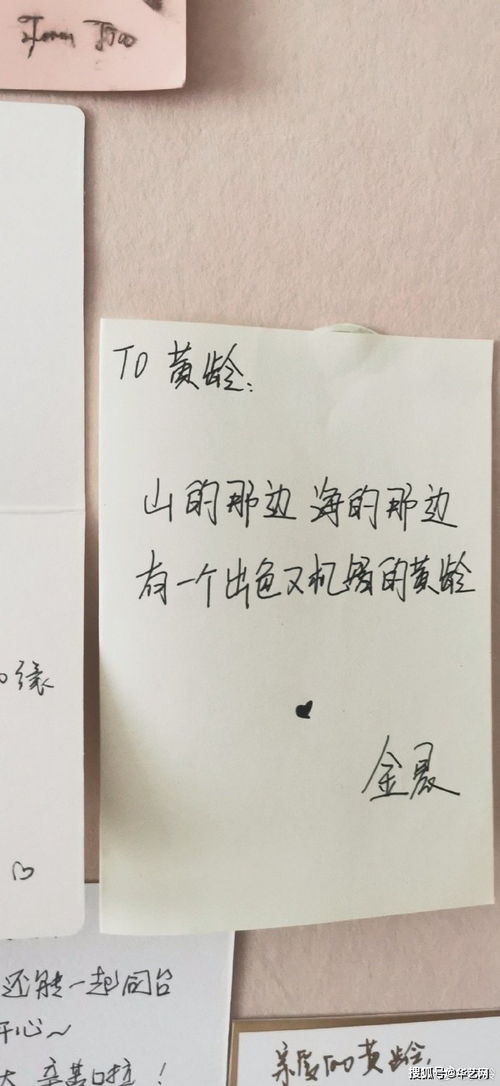 TO 黄龄:
山的那边 海的那边
有一个出色又机的黄龄
金晨
缘
还能一起同台
开心~
辛苦啦!
亲爱的黄龄,
搜狐号@华艺网